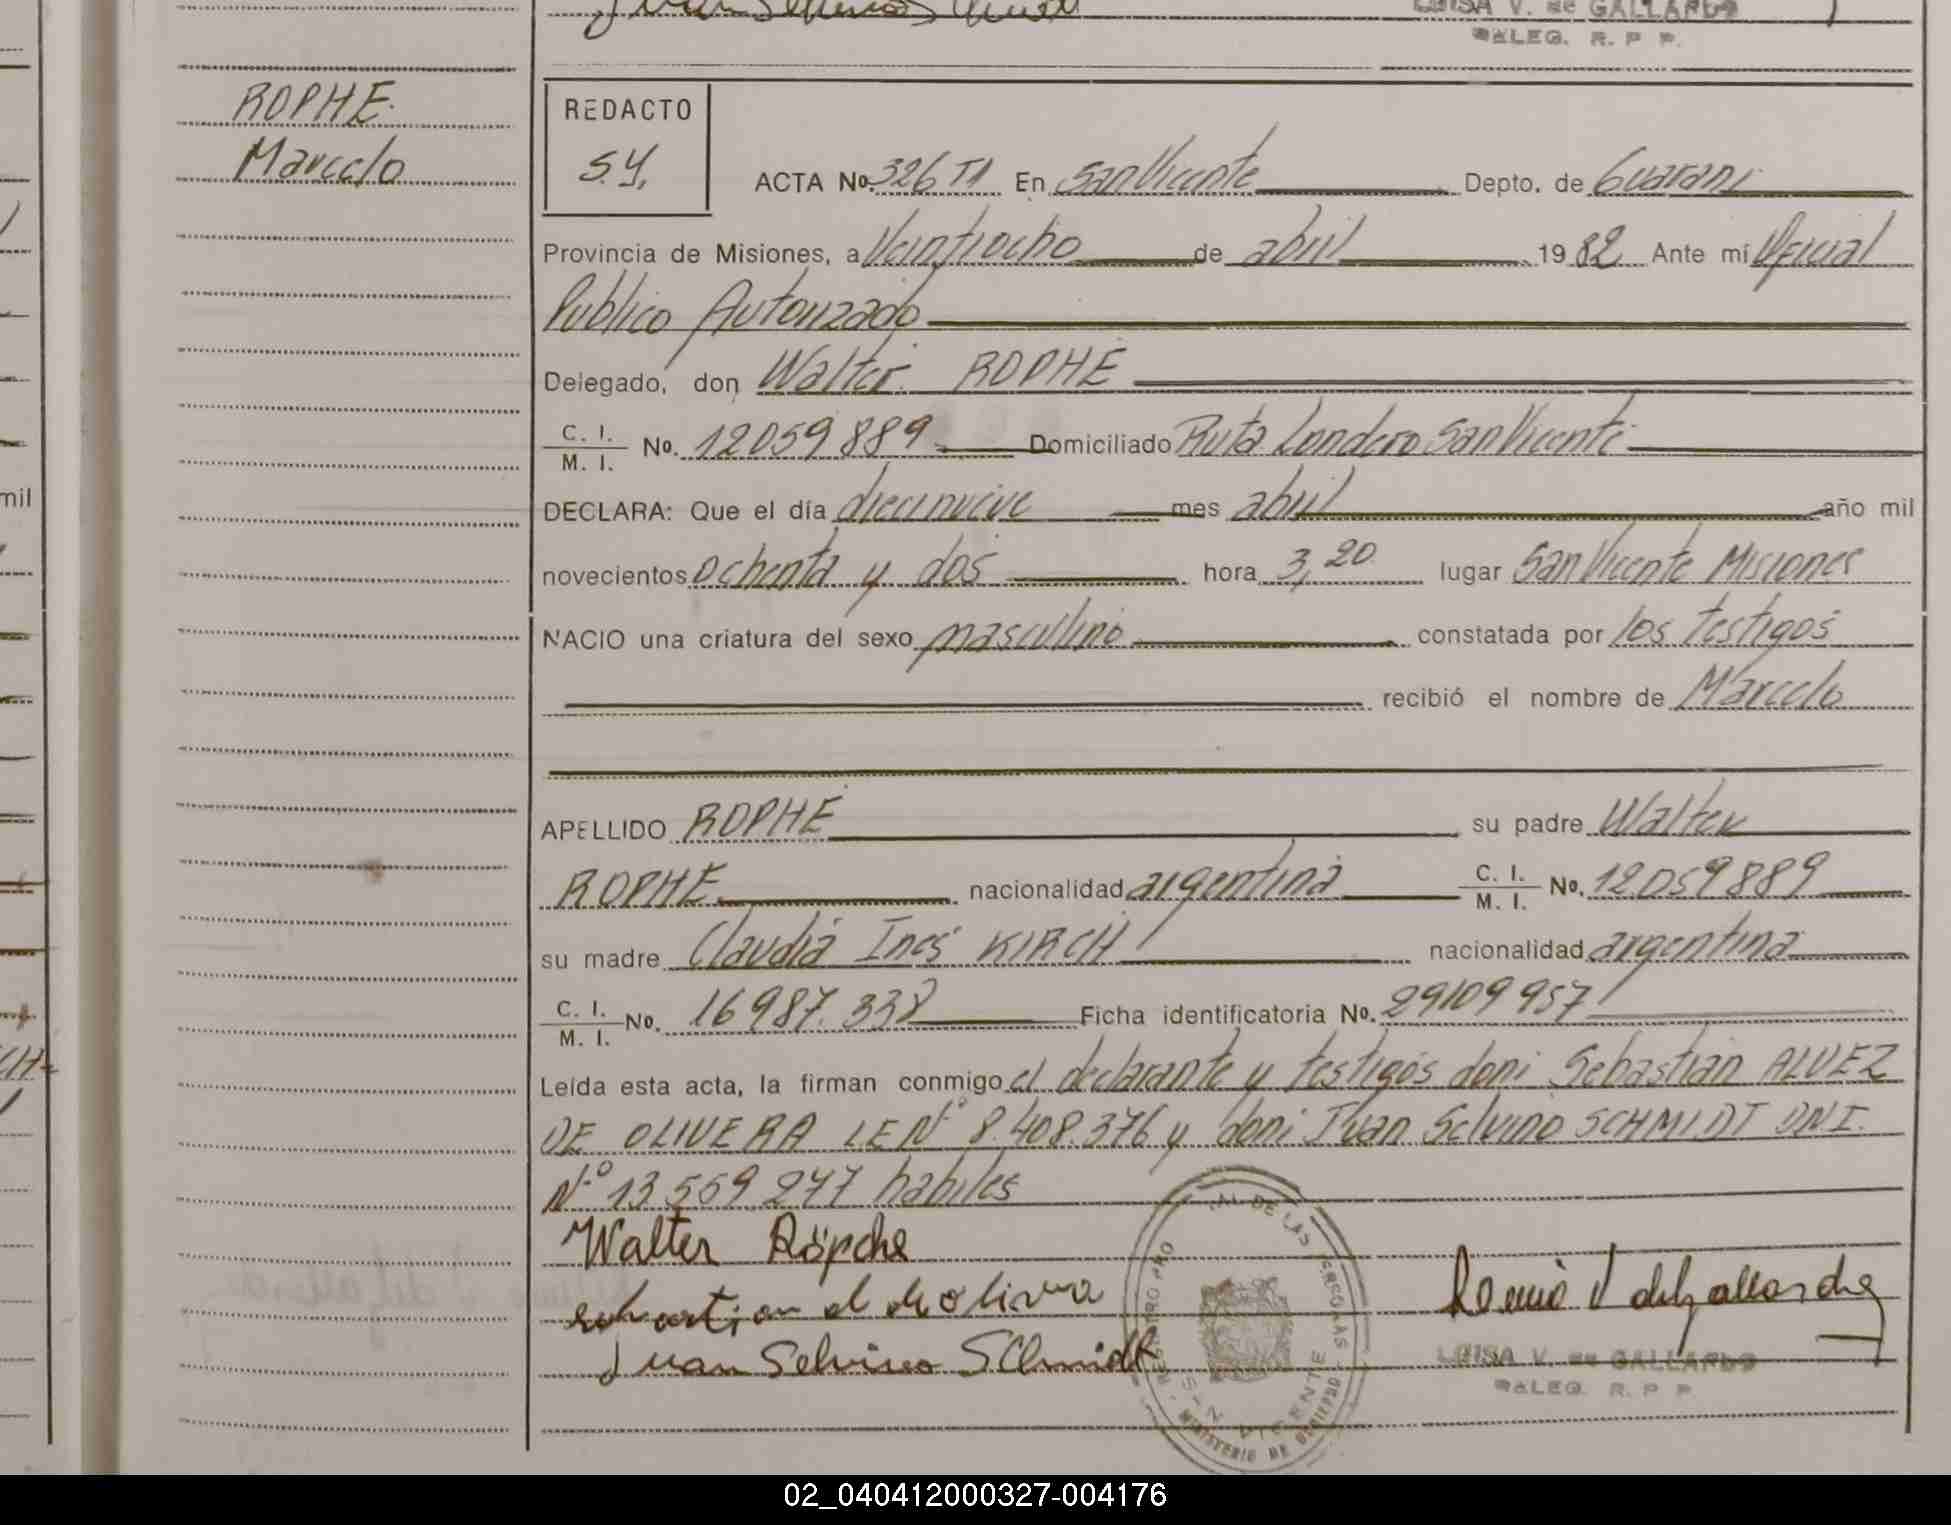 LUISA V. de GALLARDO
DALEG. R. P P.
ROPHE
Marcelo
REDACTO
S.Y.
ACTA No. 326 T1 En San Vicente Depto. de Guarani
Provincia de Misiones, a Veintiocho de abril 1982 Ante mí Oficial
Publico Autorizado
Delegado, don Walter ROPHE
C. I. M. I. No. 12059889 Domiciliado Ruta Londero San Vicente
DECLARA: Que el día diecinueve mes abril año mil
novecientos ochenta y dos hora 3,20 lugar San Vicente Misiones
NACIO una criatura del sexo masculino constatada por los testigos
recibió el nombre de Marcelo
APELLIDO ROPHE su padre Walter
ROPHE nacionalidad argentina C. I. M. I. No. 12.059889
su madre Claudia Ines KIRCH nacionalidad argentina
C. I. M. I. No. 16987.338 Ficha identificatoria No. 29109957
Leída esta acta, la firman conmigo el declarante y testigos don: Sebastian ALVEZ
DE OLIVERA LE Nº 8.408.376 y don: Juan Selvino SCHMIDT DNI.
Nº 13.559.247 habiles
Walter Röpche
Juan Selvino SChmidt
LUISA V. de GALLARDO
DALEG. R. P P
mil
02_040412000327-004176